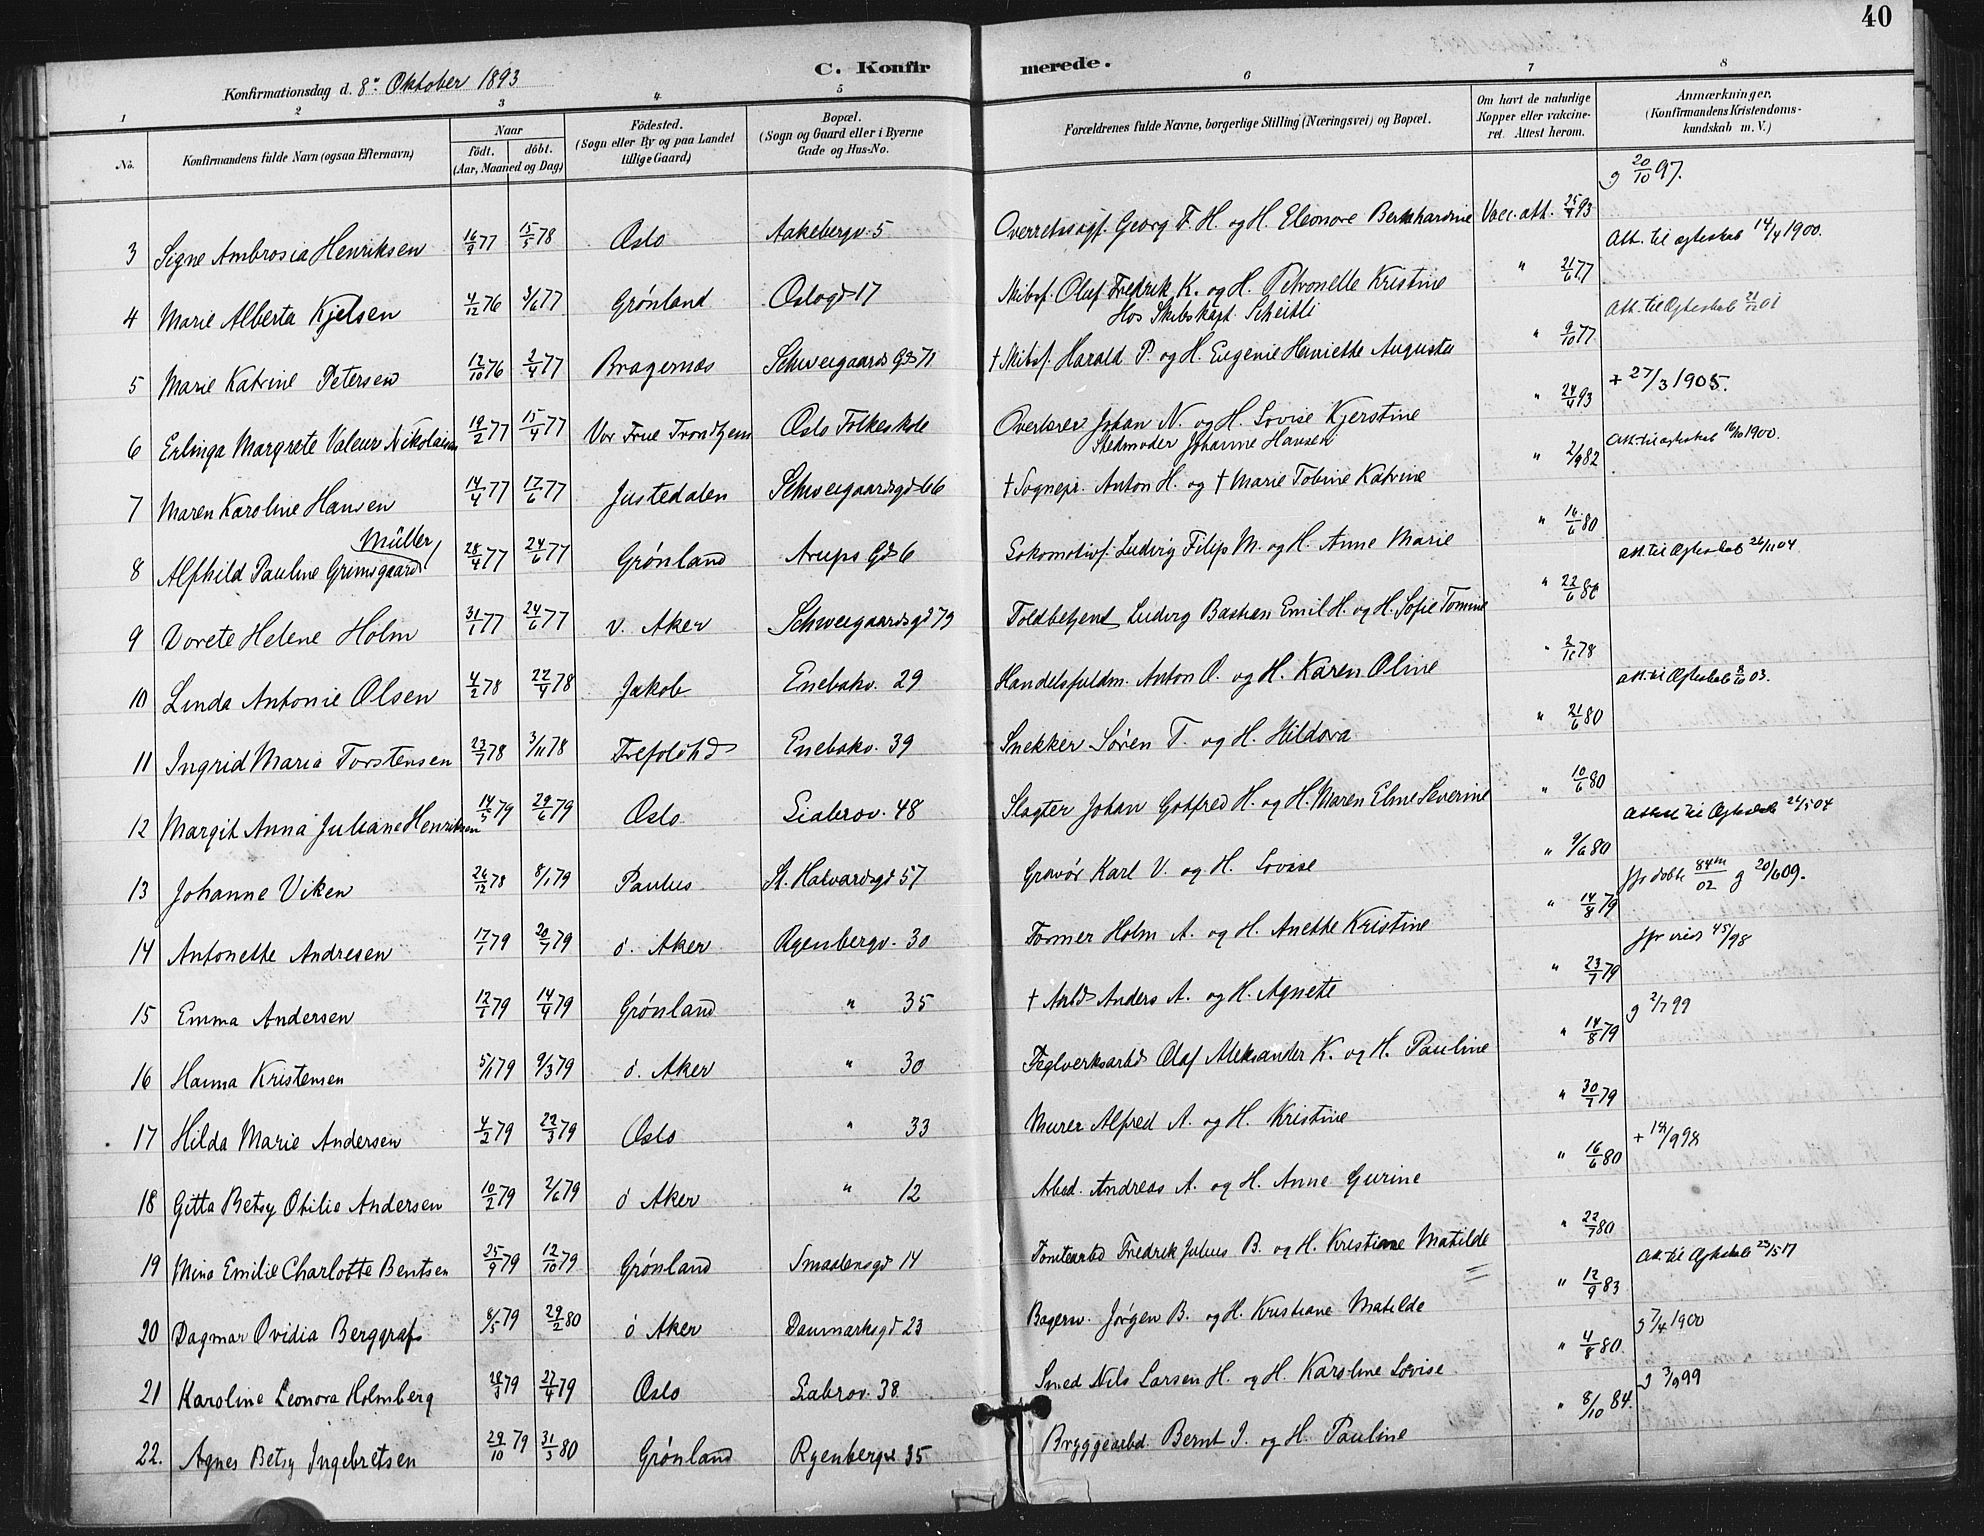 40
Konfirmationsdag d. 8de Oktober 1893
C. Konfirmerede.
1 2 3 4 5 6 7 8
No. Konfirmandens fulde Navn (ogsaa Efternavn) Naar født. døbt. (Aar, Maaned og Dag) Födested. (Sogn eller By og paa Landet tillige Gaard) Bopæl. (Sogn og Gaard eller i Byerne Gade og Hus-No. Forældrenes fulde Navne, borgerlige Stilling (Næringsvei) og Bopæl. Om havt de naturlige Kopper eller vaccineret. Attest herom. Anmærkninger. (Konfirmandens Kristendomskundskab m. V.)
g 20/10 97.
3 Signe Ambrosia Henriksen 16/9 77 15/5 78 Oslo Aakebergv. 5 Overretssagf. Georg F. H. og H. Eleonore Bernhardine Vacc. att. 25/4 93
Att. til ægteskab 14/4 1900.
4 Marie Alberta Kjelsen 4/12 76 3/6 77 Grønland Oslogd 17 Skibsf. Oluf Fredrik K. og H. Petronelle Kristine " 21/6 77
Hos Skibskapt. Scheitli
Att. til Ægteskab 21/12 01
5 Marie Katrine Petersen 12/10 76 2/4 77 Bragernæs Schweigaards Gd 71 † Skibsf. Harald P. og H. Eugenie Henriette Augusta " 9/10 77
+ 27/3 1905.
6 Erlinga Margrete Valeur Nikolaisen 19/2 77 15/4 77 Vor Frue Trondhjem Oslo Folkeskole Overlærer Johan N. og H. Lovise Kjerstine " 24/4 93
Stedmoder Johanne Hansen
Att. til ægteskab 16/10 1900.
7 Maren Karoline Hansen 14/4 77 17/6 77 Justedalen Schweigaardsgd 66 † Sognepr. Anton H. og † Marie Tobine Katrine " 2/9 82
8 Alfhild Pauline Grimsgaard Müller 28/4 77 24/6 77 Grønland Arups Gd 6 Lokomotivf. Ludvig Filip M. og H. Anne Marie " 16/6 80
Att. til Ægteskab 26/11 04
9 Dorete Helene Holm 31/1 77 24/6 77 V. Aker Schweigaardsgd 79 Toldbetjent Ludvig Bastian Emil H. og H. Sofie Tomine " 22/6 80
10 Linda Antonie Olsen 4/2 78 22/4 78 Jakob Enebakv. 29 Handelsfuldm. Anton O. og H. Karen Oline " 2/10 78
Att. til Ægteskab 8/10 03.
11 Ingrid Maria Torstensen 23/7 78 3/11 78 Trefoldhd Enebakv. 39 Snekker Søren T. og H. Hildora " 21/6 80
12 Margit Anna Juliane Henriksen 14/5 79 29/6 79 Oslo Liabrov. 48 Slagter Johan Gotfred H. og H. Maren Eline Severine " 10/6 80
Attest til Ægteskab 24/5 04
13 Johanne Viken 26/12 78 8/1 79 Paulus St. Halvardsgd 57 Gravør Karl V. og H. Lovise " 9/6 80
jfr døbte 84m/02 g 20/6 09.
14 Antonette Andresen 17/1 79 20/7 79 ø. Aker Ryenbergv. 30 Former Holm A. og H. Anette Kristine " 14/8 79
jfr vies 45/98
15 Emma Andersen 12/1 79 14/4 79 Grønland " 35 † Arbd Anders A. og H. Agnete " 23/7 79
g 2/7 99
16 Hanna Kristensen 5/1 79 9/3 79 ø. Aker " 30 Teglverksarbd Olaf Aleksander K. og H. Pauline " 14/8 79
17 Hilda Marie Andersen 4/2 79 22/3 79 Oslo " 33 Murer Alfred A. og H. Kristine " 30/7 79
+ 14/9 98
18 Gitta Betsy Otilie Andersen 10/2 79 2/6 79 ø Aker " 12 Arbed. Andreas A. og H. Anne Gurine " 16/6 80
19 Mina Emilie Charlotte Bentsen 25/9 79 12/10 79 Grønland Smaalensgd 14 Tomtearbd Fredrik Julius B. og H. Kristiane Matilde " 22/7 80
Att. til Ægteskab 23/5 17
20 Dagmar Ovidia Berggraf 8/5 79 29/2 80 ø Aker Danmarksgd 23 Bagerm. Jørgen B. og H. Kristiane Matilde " 12/9 83
g 7/4 1900
21 Karoline Leonora Holmberg 28/3 79 27/4 79 Oslo Liabrov. 38 Smed Nils Larsen H. og H. Karoline Lovise " 4/8 80
g 3/9 99
22. Agnes Betsy Ingebretsen 29/10 79 31/3 80 Grønland Ryenbergv 35 Bryggearbd. Bernt I. og H. Pauline " 8/10 84.